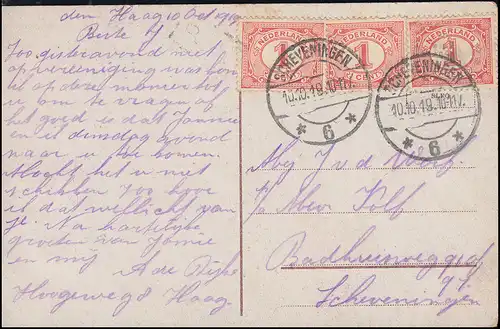 den Haag 10 Oct 19
Beste
Zoo gisteravond niet
op vereeniging was kom
ik op deze manier tot
u om te vragen of
het goed is dat Jannie
en ik dinsdag avond
naar u te komen.
Mocht het u niet
schikken zoo hoor
ik dat wellicht van
je. Na hartelijke
groeten van Jannie
en mij
A de
Hoogeweg 8 Haag.
NEDERLAND NEDERLAND NEDERLAND
1 1 1
SCHEVENINGEN
10.10.19.10-11V.
* 6 *
SCHEVENINGEN
10.10.19.10-11V.
* 6 *
Mej J. v d
p/a Mevr Kolf
Badhuisweg
Scheveningen